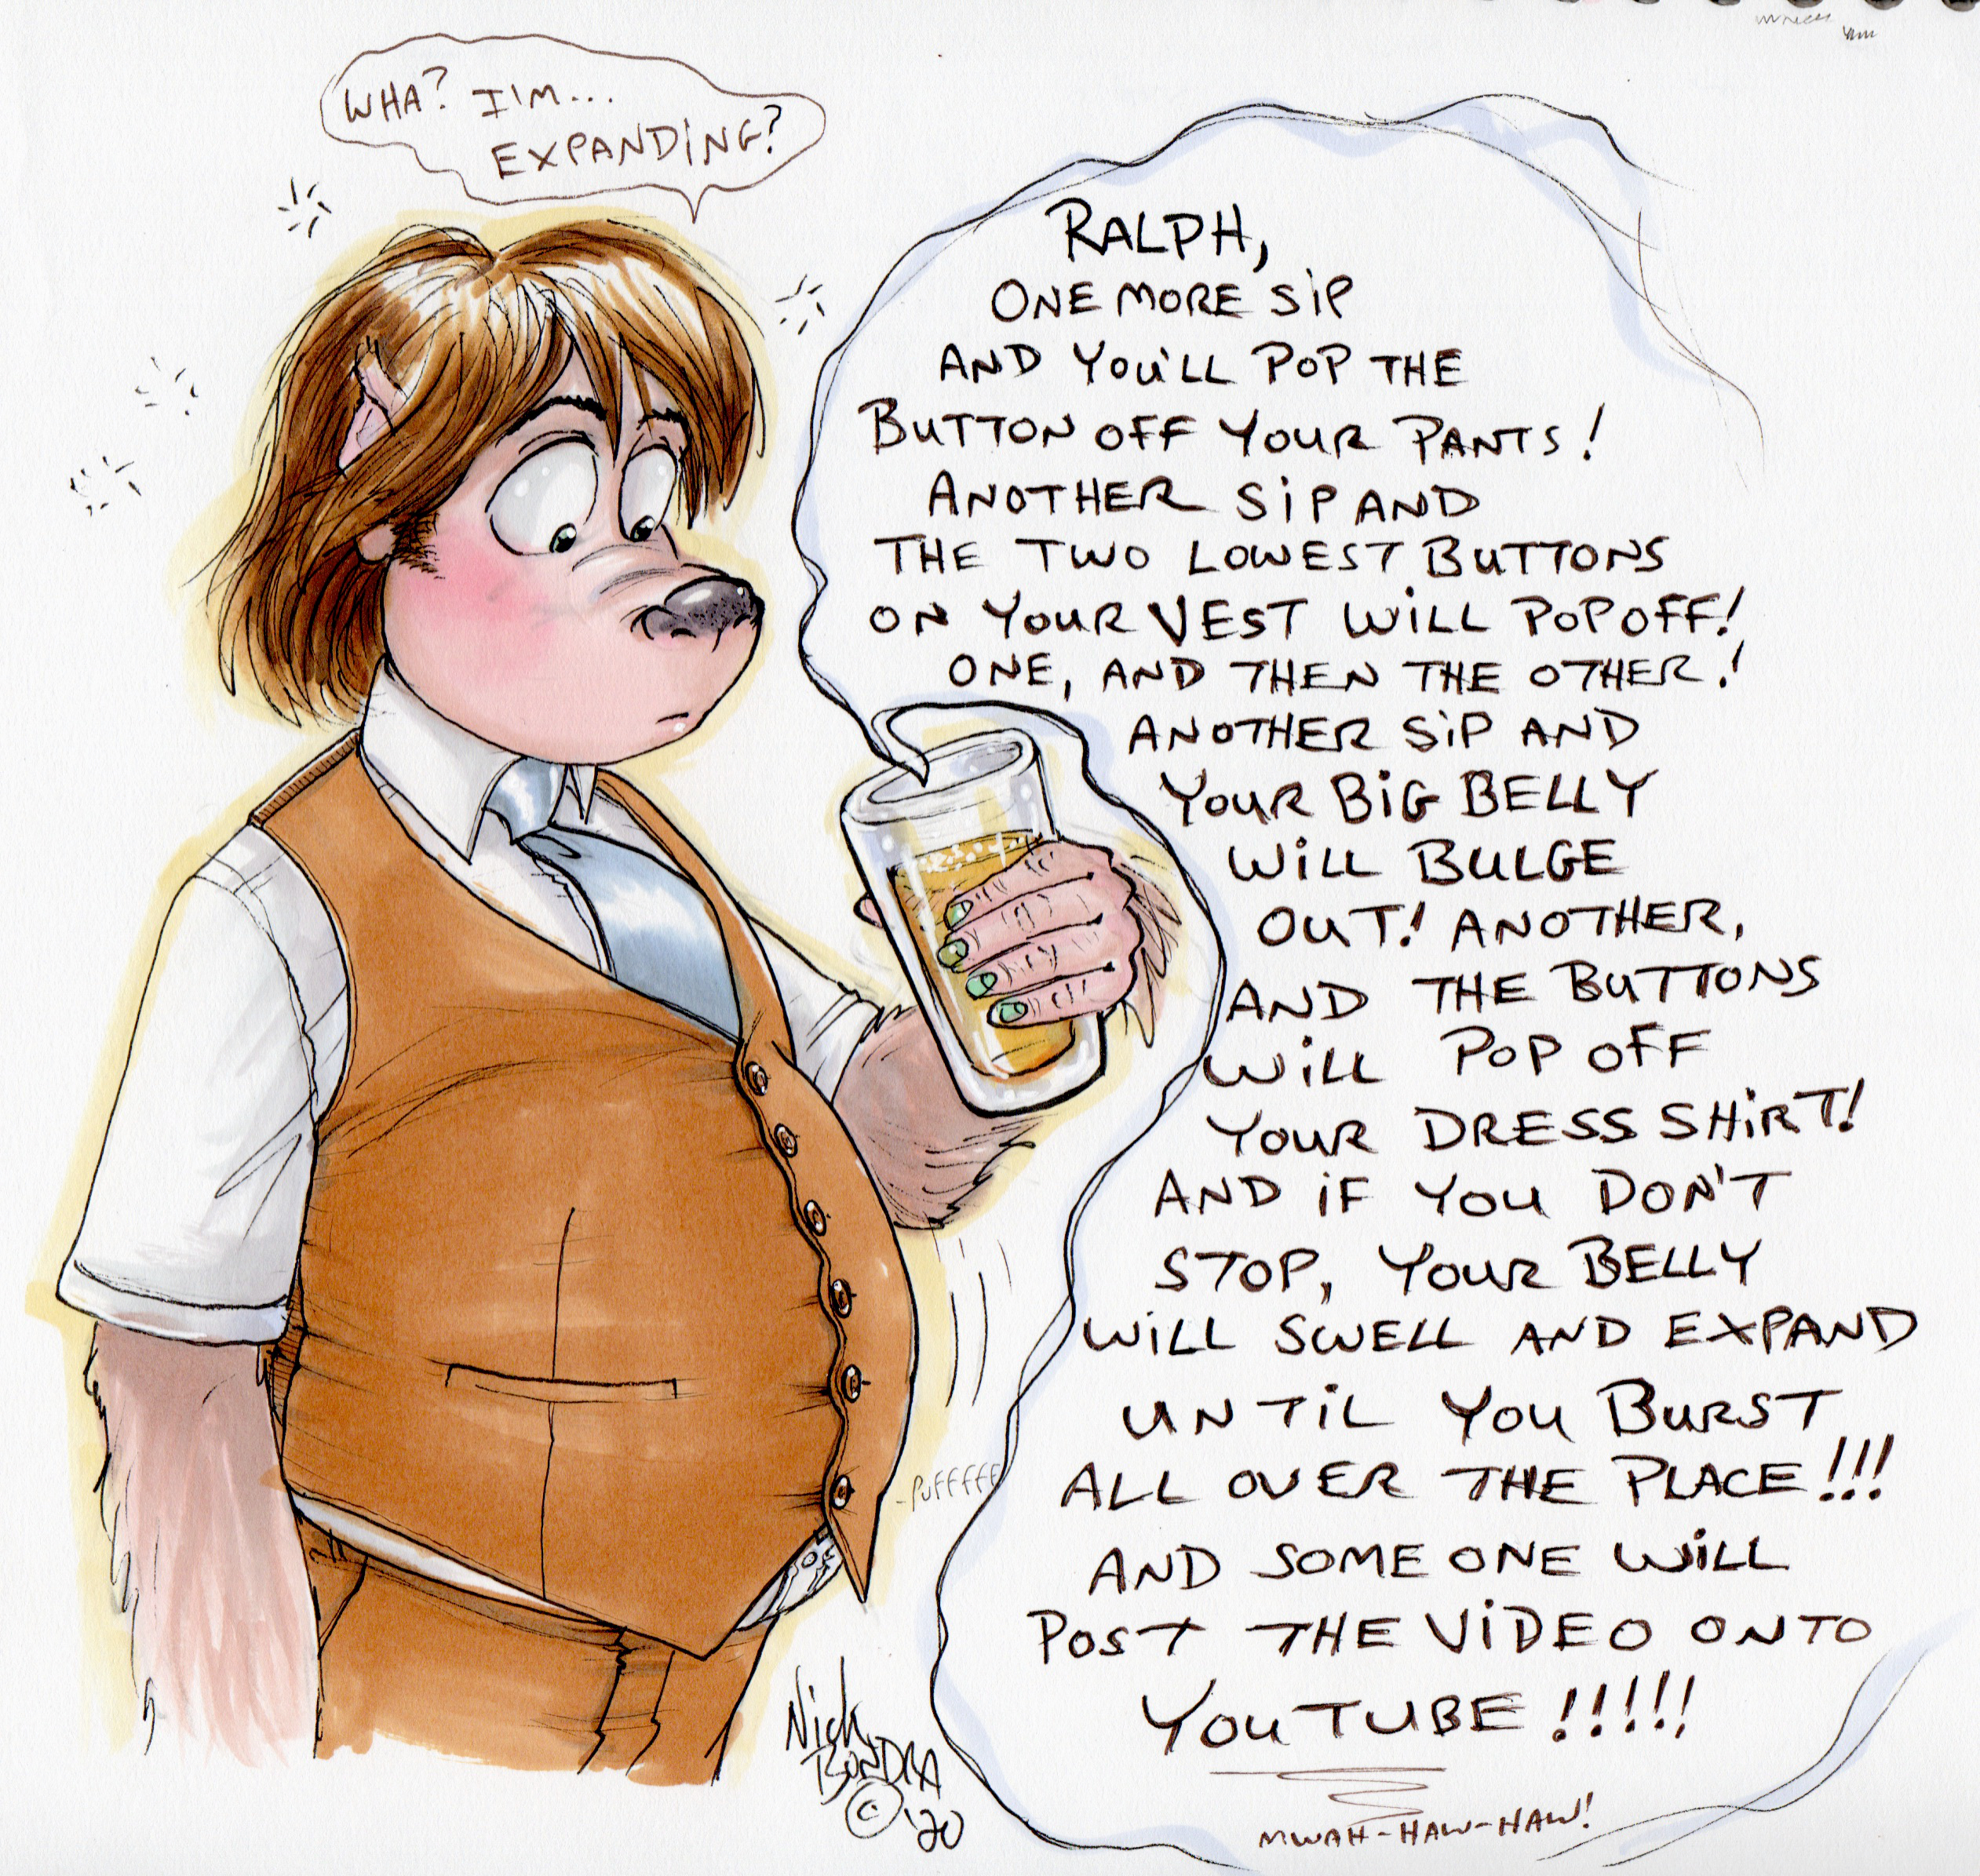 WHA? I'M...
EXPANDING?
RALPH,
ONE MORE SIP
AND YOU'LL POP THE
BUTTON OFF YOUR PANTS!
ANOTHER SIP AND
THE TWO LOWEST BUTTONS
ON YOUR VEST WILL POP OFF!
ONE, AND THEN THE OTHER!
ANOTHER SIP AND
YOUR BIG BELLY
WILL BULGE
OUT! ANOTHER,
AND THE BUTTONS
WILL POP OFF
YOUR DRESS SHIRT!
AND IF YOU DON'T
STOP, YOUR BELLY
WILL SWELL AND EXPAND
UNTIL YOU BURST
ALL OVER THE PLACE!!!
AND SOMEONE WILL
POST THE VIDEO ONTO
YOUTUBE!!!!!
MWAH-HAW-HAW!
-PUFFFFF
Nick
BONDRA
© '20